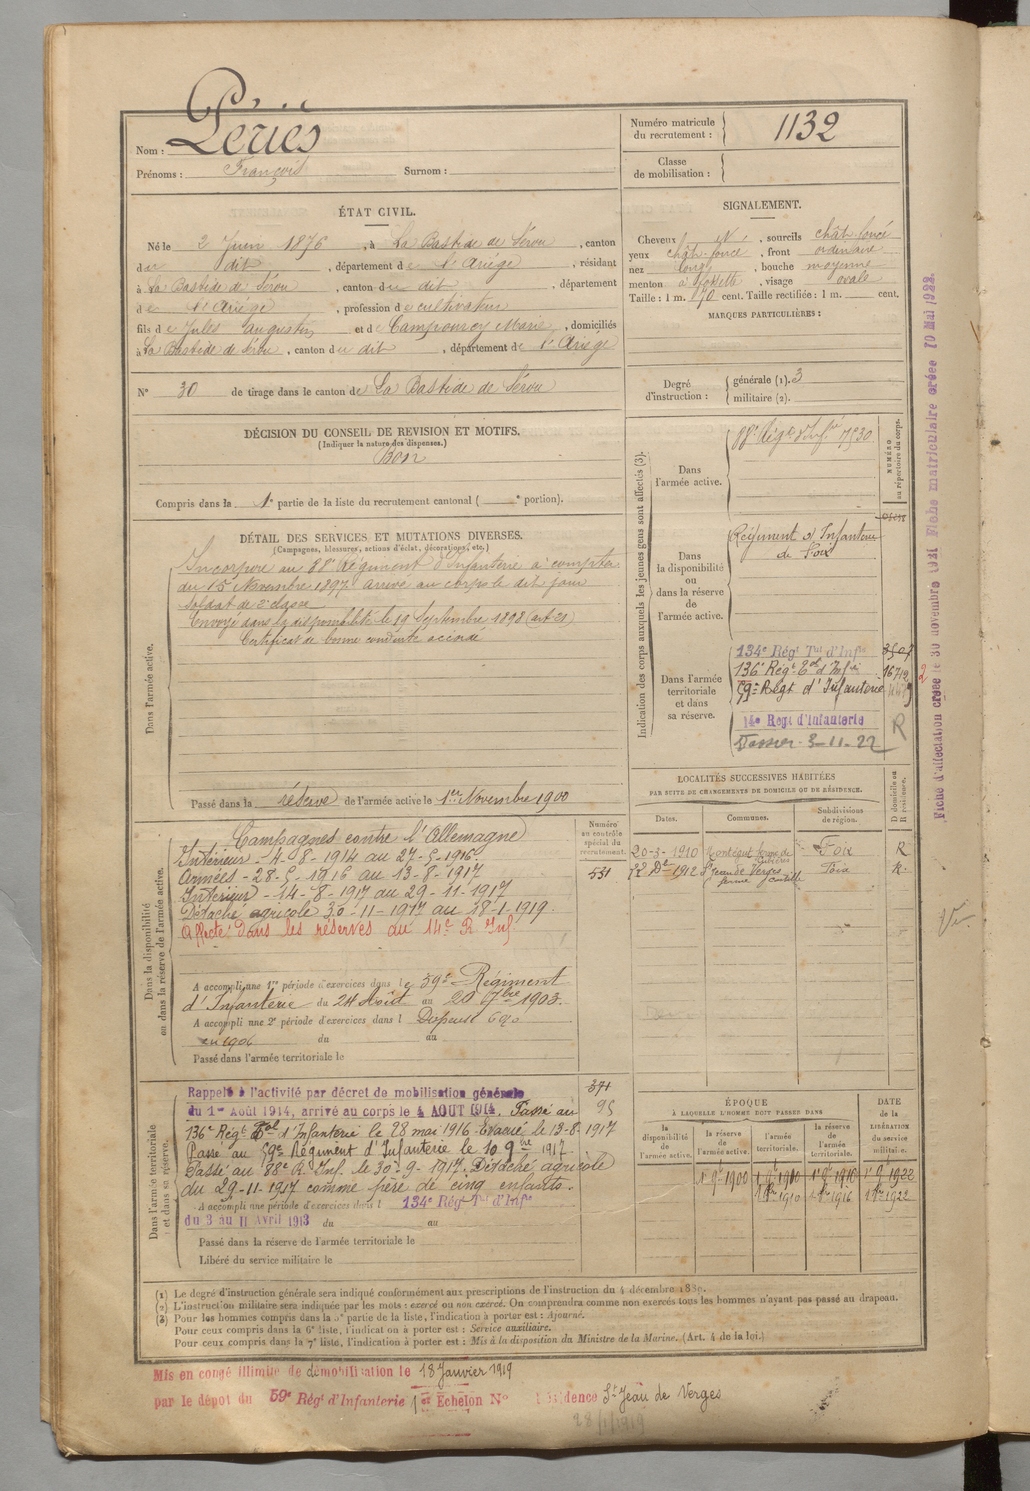 Nom : Périès
Prénoms : François Surnom :
Numéro matricule du recrutement : 1132
Classe de mobilisation :
ÉTAT CIVIL.
Né le 2 Juin 1876, à La Bastide de Sérou, canton
du dit, département de l'Ariège, résidant
à La Bastide de Sérou, canton du dit, département
de l'Ariège, profession de cultivateur
fils de Jules Augustin et de Campourcy Marie, domiciliés
à La Bastide de Sérou, canton du dit, département de l'Ariège
N° 30 de tirage dans le canton de La Bastide de Sérou
SIGNALEMENT.
Cheveux N, sourcils chât foncé
yeux chât foncé, front ordinaire
nez long, bouche moyenne
menton à fossette, visage ovale
Taille : 1 m. 70 cent. Taille rectifiée : 1 m. cent.
MARQUES PARTICULIÈRES :
Degré d'instruction : générale (1). 3
militaire (2).
DÉCISION DU CONSEIL DE REVISION ET MOTIFS.
(Indiquer la nature des dispenses.)
Bon
Compris dans la 1e partie de la liste du recrutement cantonal ( e portion).
DÉTAIL DES SERVICES ET MUTATIONS DIVERSES.
(Campagnes, blessures, actions d'éclat, décorations, etc.)
Dans l'armée active.
Incorporé au 88e Régiment d'Infanterie à compter
du 15 Novembre 1897 arrivé au corps le dit jour
soldat de 2e classe
Envoyé dans la disponibilité le 19 Septembre 1898 (art 21)
Certificat de bonne conduite accordé
Passé dans la réserve de l'armée active le 1er Novembre 1900
Indication des corps auxquels les jeunes gens sont affectés (3).
NUMÉRO au répertoire du corps.
Dans l'armée active.
88e Régt d'Infie 7530
Dans la disponibilité ou dans la réserve de l'armée active.
Régiment d'Infanterie
de Foix
Dans l'armée territoriale et dans sa réserve.
134e Régt Tal d'Infie
136e Régt Tal d'Infie
59e Régt d'Infanterie
14e Régt d'Infanterie
R
3-11-22
LOCALITÉS SUCCESSIVES HABITÉES
PAR SUITE DE CHANGEMENTS DE DOMICILE OU DE RÉSIDENCE.
D domicile ou R résidence.
Dates. Communes. Subdivisions de région.
20-3-1910 Foix R
1912 St Jean de Verges Foix R.
ferme
Dans la disponibilité ou dans la réserve de l'armée active.
Numéro au contrôle spécial du recrutement.
531
Campagnes contre l'Allemagne
Intérieur - 4-8-1914 au 27-5-1916.
Armées - 28-5-1916 au 13-8-1917
Intérieur - 14-8-1917 au 29-11-1917
Détaché agricole 30-11-1917 au 18-1-1919.
Affecté dans les réserves du 14e R. Inf.
A accompli une 1re période d'exercices dans le 59e Régiment
d'Infanterie du 24 Août au 20 7bre 1903.
A accompli une 2e période d'exercices dans l Dispensé
en 1906 du au
Passé dans l'armée territoriale le
Dans l'armée territoriale et dans sa réserve.
371
95
Rappelé à l'activité par décret de mobilisation générale
du 1er Août 1914, arrivé au corps le 4 AOUT 1914. Passé au
136e Régt Tal d'Infanterie le 28 mai 1916. Evacué le 13-8-1917
Passé au 59e Régiment d'Infanterie le 10 9bre 1917.
Passé au 88e R. Inf. le 30-9-1917. Détaché agricole
du 29-11-1917 comme père de cinq enfants.
A accompli une période d'exercices dans l 134e Régt Tal d'Infie
du 3 au 11 Avril 1913 du au
Passé dans la réserve de l'armée territoriale le
Libéré du service militaire le
ÉPOQUE
À LAQUELLE L'HOMME DOIT PASSER DANS
DATE de la LIBÉRATION du service militaire.
la disponibilité de l'armée active. la réserve de l'armée active. l'armée territoriale. la réserve de l'armée territoriale.
1er 9bre 1900 1er 9bre 1910 1er 9bre 1916 1er 9bre 1922
1er 9bre 1910 1er 9bre 1916 1er 9bre 1922
(1) Le degré d'instruction générale sera indiqué conformément aux prescriptions de l'instruction du 4 décembre 1889.
(2) L'instruction militaire sera indiquée par les mots : exercé ou non exercé. On comprendra comme non exercés tous les hommes n'ayant pas passé au drapeau.
(3) Pour les hommes compris dans la 5e partie de la liste, l'indication à porter est : Ajourné.
Pour ceux compris dans la 6e liste, l'indication à porter est : Service auxiliaire.
Pour ceux compris dans la 7e liste, l'indication à porter est : Mis à la disposition du Ministre de la Marine. (Art. 4 de la loi.)
Mis en congé illimité de démobilisation le 18 Janvier 1919
par le dépôt du 59e Régt d'Infanterie 1er Echelon N° Résidence St Jean de Verges
28/1/1919
Fiche d'affectation créée le 30 novembre 1921 Fiche matriculaire créée 10 Mai 1922.